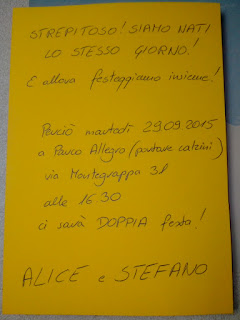 STREPITOSO! SIAMO NATI
LO STESSO GIORNO!
E allora festeggiamo insieme!
Perciò martedì 29.09.2015
a Parco Allegro (portare calzini)
via Montegrappa 31
alle 16.30
ci sarà DOPPIA festa!
ALICE e STEFANO